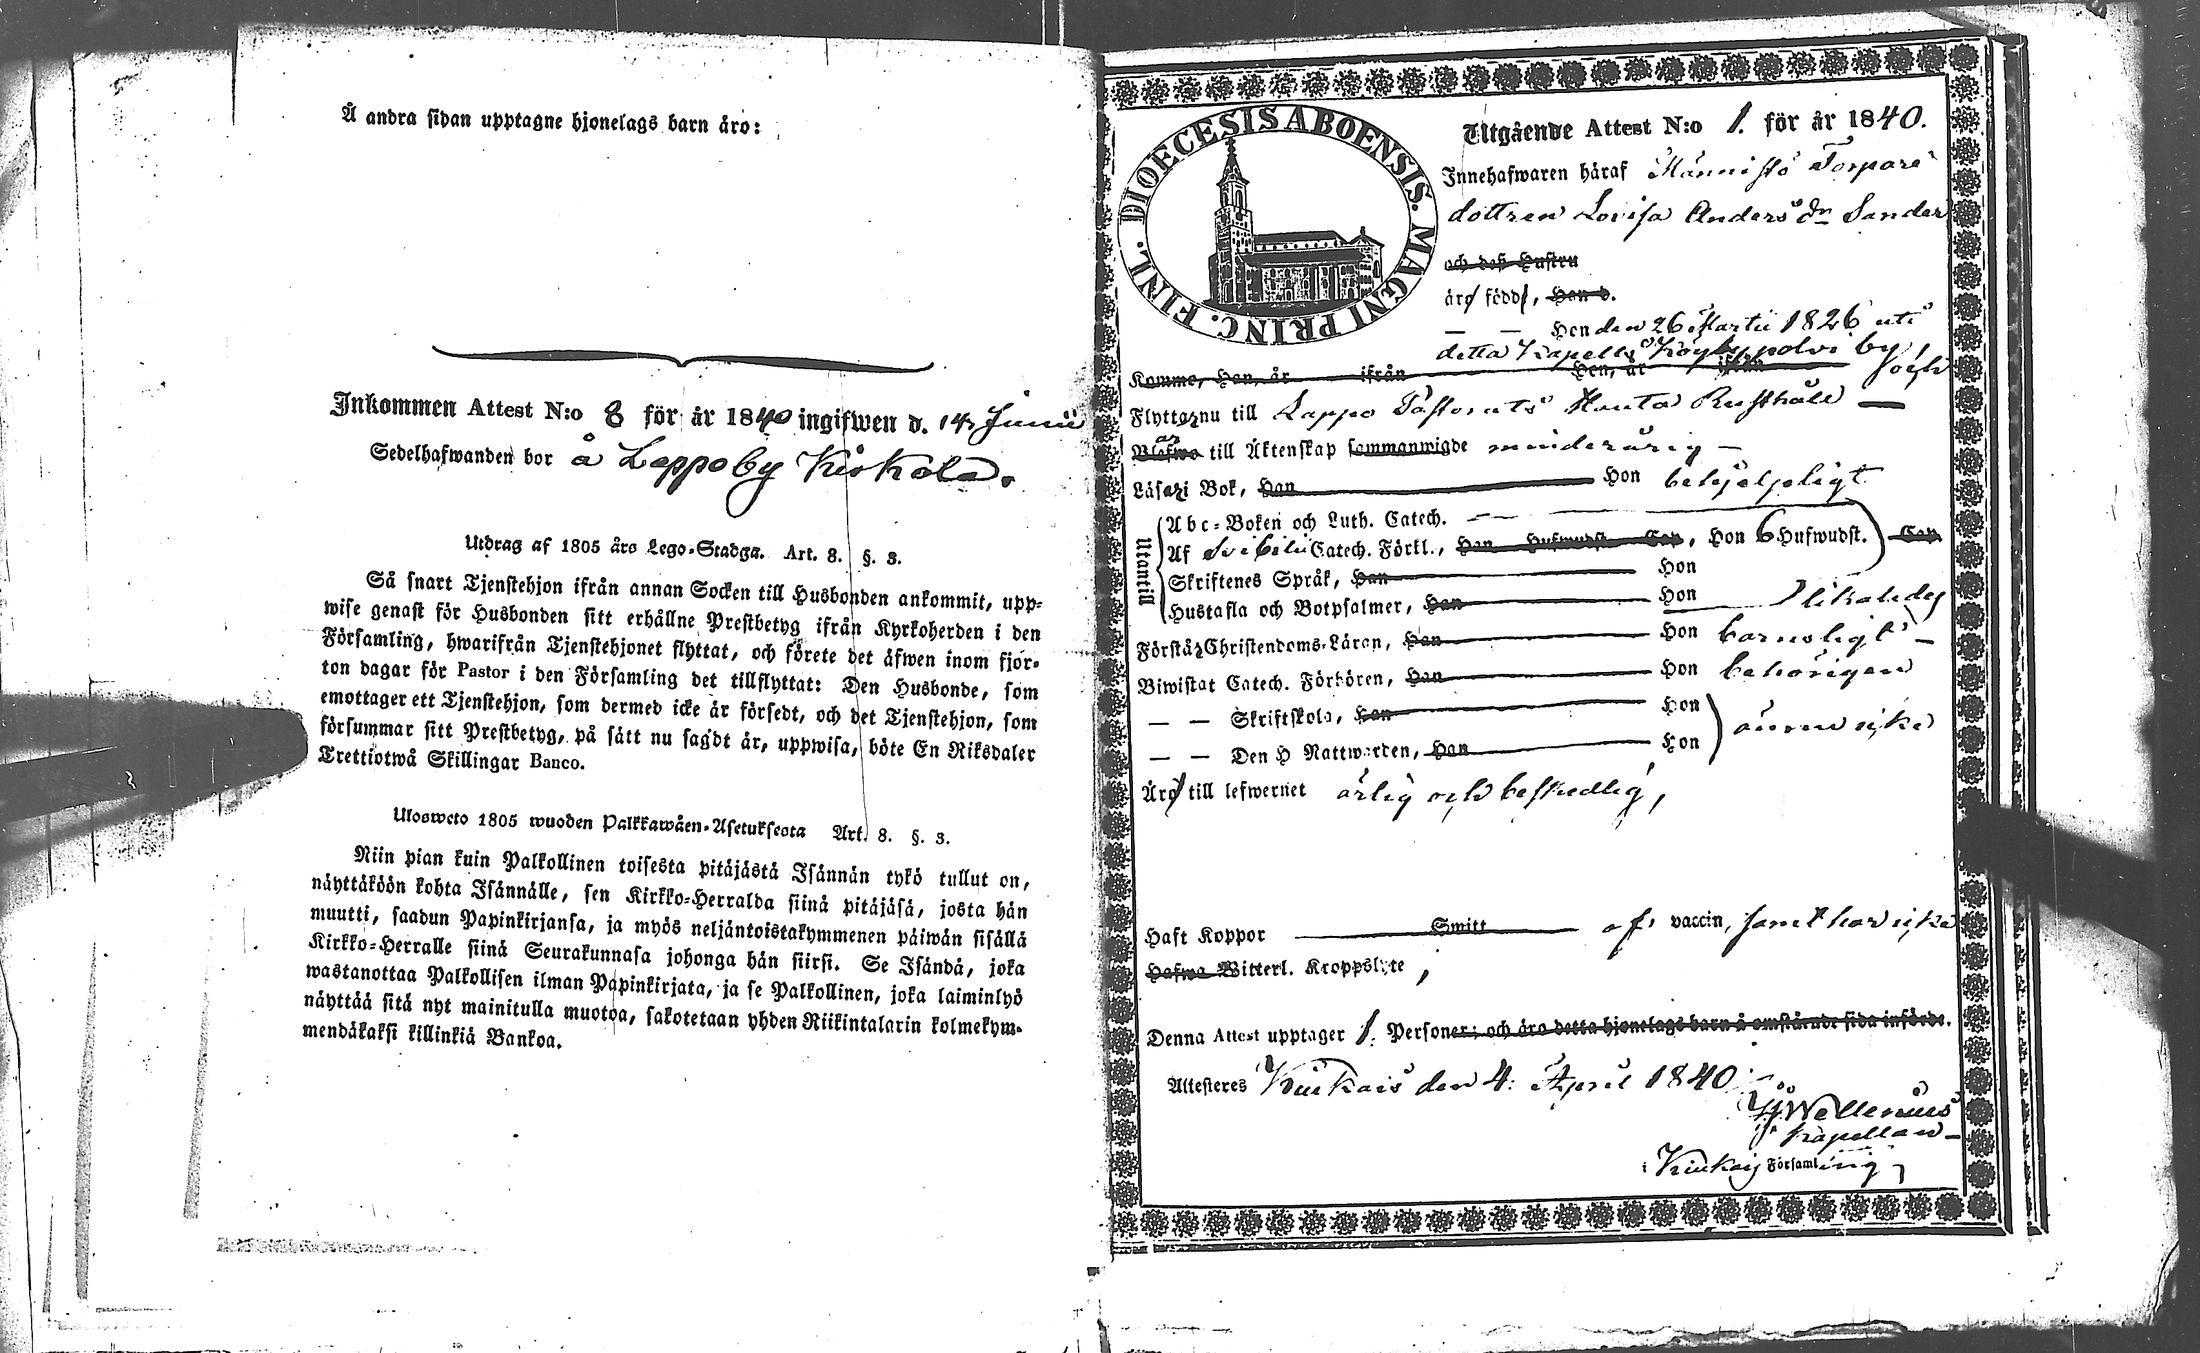 Å andra sidan upptagne hjonelags barn äro:
Inkommen Attest N:o 8 för år 1840 ingifwen d. 14 Junii
Sedelhafwanden bor å Lappo by Kiskola.
Utdrag af 1805 års Lego-Stadga. Art. 8. §. 3.
Så snart Tjenstehjon ifrån annan Socken till Husbonden ankommit, upp-
wise genast för Husbonden sitt erhållne Prestbetyg ifrån Kyrkoherden i den
Församling, hwarifrån Tjenstehjonet flyttat, och förete det äfwen inom fjor-
ton dagar för Pastor i den Församling det tillflyttat: Den Husbonde, som
emottager ett Tjenstehjon, som dermed icke är försedt, och det Tjenstehjon, som
försummar sitt Prestbetyg, på sätt nu sagdt är, uppwisa, böte En Riksdaler
Trettiotwå Skillingar Banco.
Ulosweto 1805 wuoden Palkkawäen-Asetuksesta Art. 8. §. 3.
Niin pian kuin Palkollinen toisesta pitäjästä Isännän tykö tullut on,
näyttäköön kohta Isännälle, sen Kirkko-Herralda siinä pitäjäsä, josta hän
muutti, saadun Papinkirjansa, ja myös neljäntoistakymmenen päiwän sisällä
Kirkko-Herralle siinä Seurakunnasa johonga hän siirsi. Se Isändä, joka
wastanottaa Palkollisen ilman Papinkirjata, ja se Palkollinen, joka laiminlyö
näyttää sitä nyt mainitulla muotoa, sakotetaan yhden Riikintalarin kolmekym-
mendäkaksi killinkiä Bankoa.
DIOECESIS ABOENSIS. MAGNI PRINC. FINL.
Utgående Attest N:o 1. för år 1840.
Innehafwaren häraf Männistö Torpare
dottren Lovisa Andersdr Sander
och deß Hustru
äro född, Han d.
— — Hon den 26 Martii 1826 uti
detta Kapells Köylypolvi by,
Komme, Han, år ifrån Hon, år ifrån
Flyttar nu till Lappo Pastorats Hanta Rusthåll —
Blefwo till Äktenskap sammanwigde minderårig —
Läsa i Bok, Han Hon behjelpeligt
Utantill
Abc-Boken och Luth. Catech.
Af Svebilii Catech. Förkl., Han Hufwudst. Cap, Hon 6 Hufwudst. Cap.
Skriftenes Språk, Han Hon
Hustafla och Botpsalmer, Han Hon likaledes
Förstå Christendoms-Läran, Han Hon barnsligt —
Biwistat Catech. Förhören, Han Hon behörigen
— — Skriftskola, Han Hon
— — Den H Nattwarden, Han Hon ännu icke
Äro till lefwernet ärlig och beskedlig,
Haft Koppor Smitt af vaccin, samt har icke
Hafwa Witterl. Kroppslyte,
Denna Attest upptager 1. Personer; och äro detta hjonelags barn å omstående sida införde.
Attesteres Kiukais den 4. April 1840
Wellenius
Kapellan
i Kiukais Församling